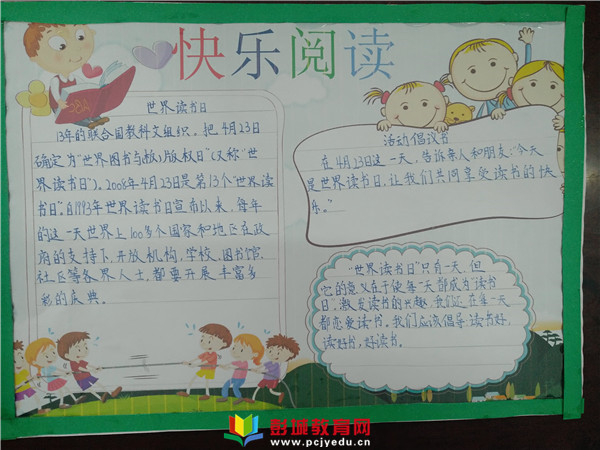 快乐阅读
世界读书日
13年的联合国教科文组织,把4月23日
确定为"世界图书与版权日"(又称"世
界读书日"),2008年4月23日是第13个"世界读
书日"自1993年世界读书日宣布以来,每年
的这一天世界上100多个国家和地区在政
府的支持下,开放机构,学校,图书馆,
社区等各界人士,都要开展丰富多
彩的庆典。
活动倡议书
在4月23日这一天,告诉亲人和朋友:"今天
是世界读书日,让我们共同享受读书的快
乐。"
"世界读书日"只有一天,但
它的意义在于使每一天都成为"读书
日",激发读书的兴趣,我们还在每一天
都恋爱读书。我们应该倡导读书好,
读好书,好读书。
彭城教育网
www.pcjyedu.cn